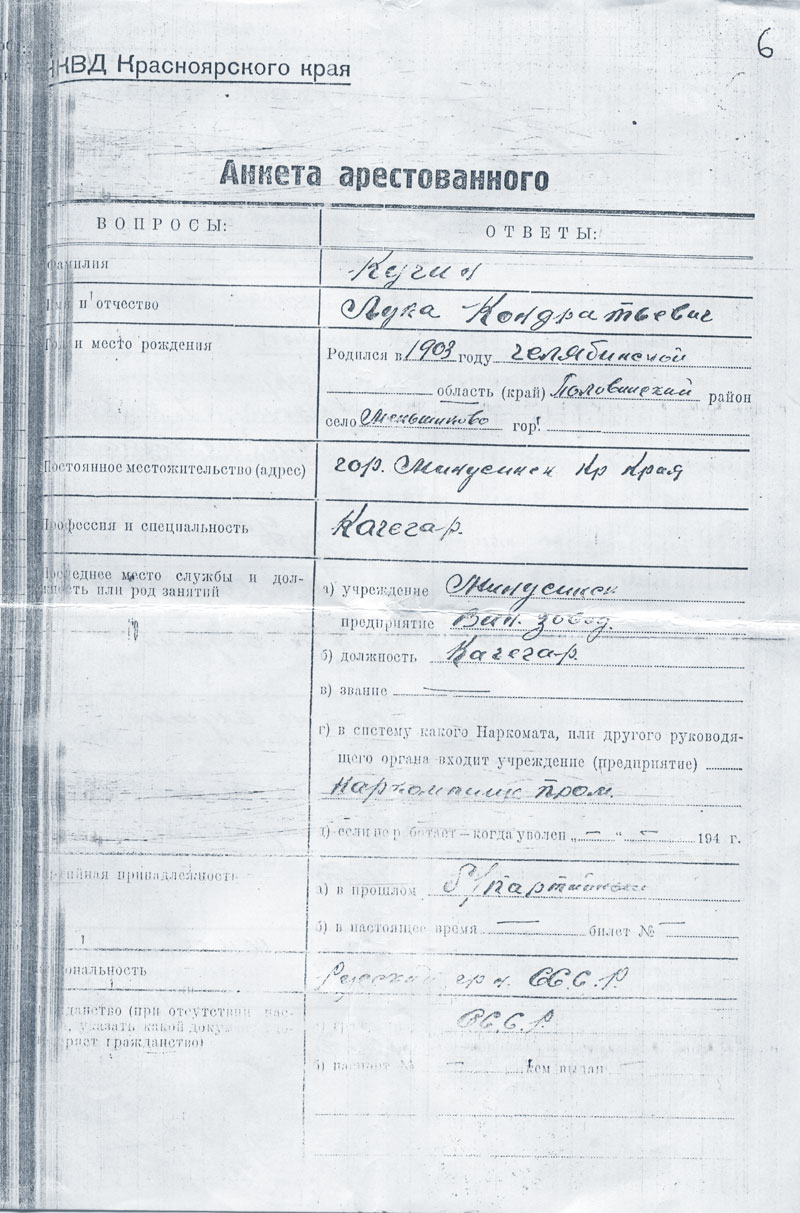 6
НКВД Красноярского края
Анкета арестованного
ВОПРОСЫ:
ОТВЕТЫ:
Фамилия
Кучин
Имя и отчество
Лука Кондратьевич
Год и место рождения
Родился в 1903 году Челябинской
область (край) Половинский район
село Меньшиково гор.
Постоянное местожительство (адрес)
гор. Минусинск Кр Края
Профессия и специальность
Качегар.
Последнее место службы и дол-
жность или род занятий
а) учреждение Минусинск
предприятие Вин. завод.
б) должность Качегар.
в) звание
г) в систему какого Наркомата, или другого руководя-
щего органа входит учреждение (предприятие)
Наркомпищепром.
д) если не работает — когда уволен „ — “ — 194 г.
Партийная принадлежность
а) в прошлом Б/партийный
б) в настоящее время — билет № —
Национальность
Русский гр н. СС.С.Р
Гражданство (при отсутствии пас-
указать какой доку-
гражданство)
СС.С.Р.
б) паспорт № — кем выдан —